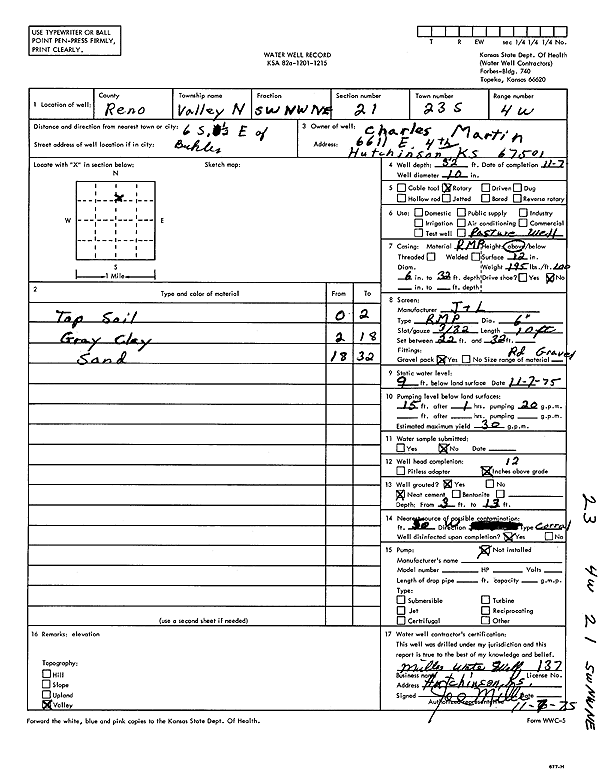 USE TYPEWRITER OR BALL
POINT PEN-PRESS FIRMLY,
PRINT CLEARLY.
WATER WELL RECORD
KSA 82a-1201-1215
T R EW sec 1/4 1/4 1/4 No.
Kansas State Dept. Of Health
(Water Well Contractors)
Forbes-Bldg. 740
Topeka, Kansas 66620
1 Location of well: County Reno Township name Valley N Fraction SW NW NE Section number 21 Town number 23 S Range number 4 W
Distance and direction from nearest town or city: 6 S, E of
Street address of well location if in city: Buhler
3 Owner of well: Charles Martin
Address: 6611 E. 4th
Hutchinson KS 67501
Locate with "X" in section below: Sketch map:
N
W E
S
1 Mile
4 Well depth: 32 ft. Date of completion 11-7
Well diameter 10 in.
5 Cable tool X Rotary Driven Dug
Hollow rod Jetted Bored Reverse rotary
6 Use: Domestic Public supply Industry
Irrigation Air conditioning Commercial
Test well Pasture Well
7 Casing: Material RMP Height: above/below
Threaded Welded Surface 12 in.
Diam. Weight 195 lbs./ft. 100
6 in. to 32 ft. depth Drive shoe? Yes X No
in. to ft. depth
2 Type and color of material From To
Top Soil 0 2
Gray Clay 2 18
Sand 18 32
8 Screen:
Manufacturer J+L
Type RMP Dia. 6"
Slot/gauze 3/32 Length 10 ft
Set between 22 ft. and 32 ft.
Fittings: Rd Gravel
Gravel pack X Yes No Size range of material
9 Static water level:
9 ft. below land surface Date 11-7-75
10 Pumping level below land surfaces:
15 ft. after 1 hrs. pumping 20 g.p.m.
ft. after hrs. pumping g.p.m.
Estimated maximum yield 30 g.p.m.
11 Water sample submitted:
Yes X No Date
12 Well head completion: 12
Pitless adapter X Inches above grade
13 Well grouted? X Yes No
X Neat cement Bentonite
Depth: From 3 ft. to 13 ft.
14 Nearest source of possible contamination:
ft. 30 Direction W Type Corral
Well disinfected upon completion? X Yes No
15 Pump: X Not installed
Manufacturer's name
Model number HP Volts
Length of drop pipe ft. capacity g.m.p.
Type:
Submersible Turbine
Jet Reciprocating
Certrifugal Other
(use a second sheet if needed)
16 Remarks: elevation
Topography:
Hill
Slope
Upland
X Valley
17 Water well contractor's certification:
This well was drilled under my jurisdiction and this
report is true to the best of my knowledge and belief.
Miller Water Well 137
Business name License No.
Address Hutchinson, Ks.
Signed Joe Miller Date 11-8-75
Authorized representative
Forward the white, blue and pink copies to the Kansas State Dept. Of Health.
Form WWC-5
677-H
23 4W 21 SWNWNE